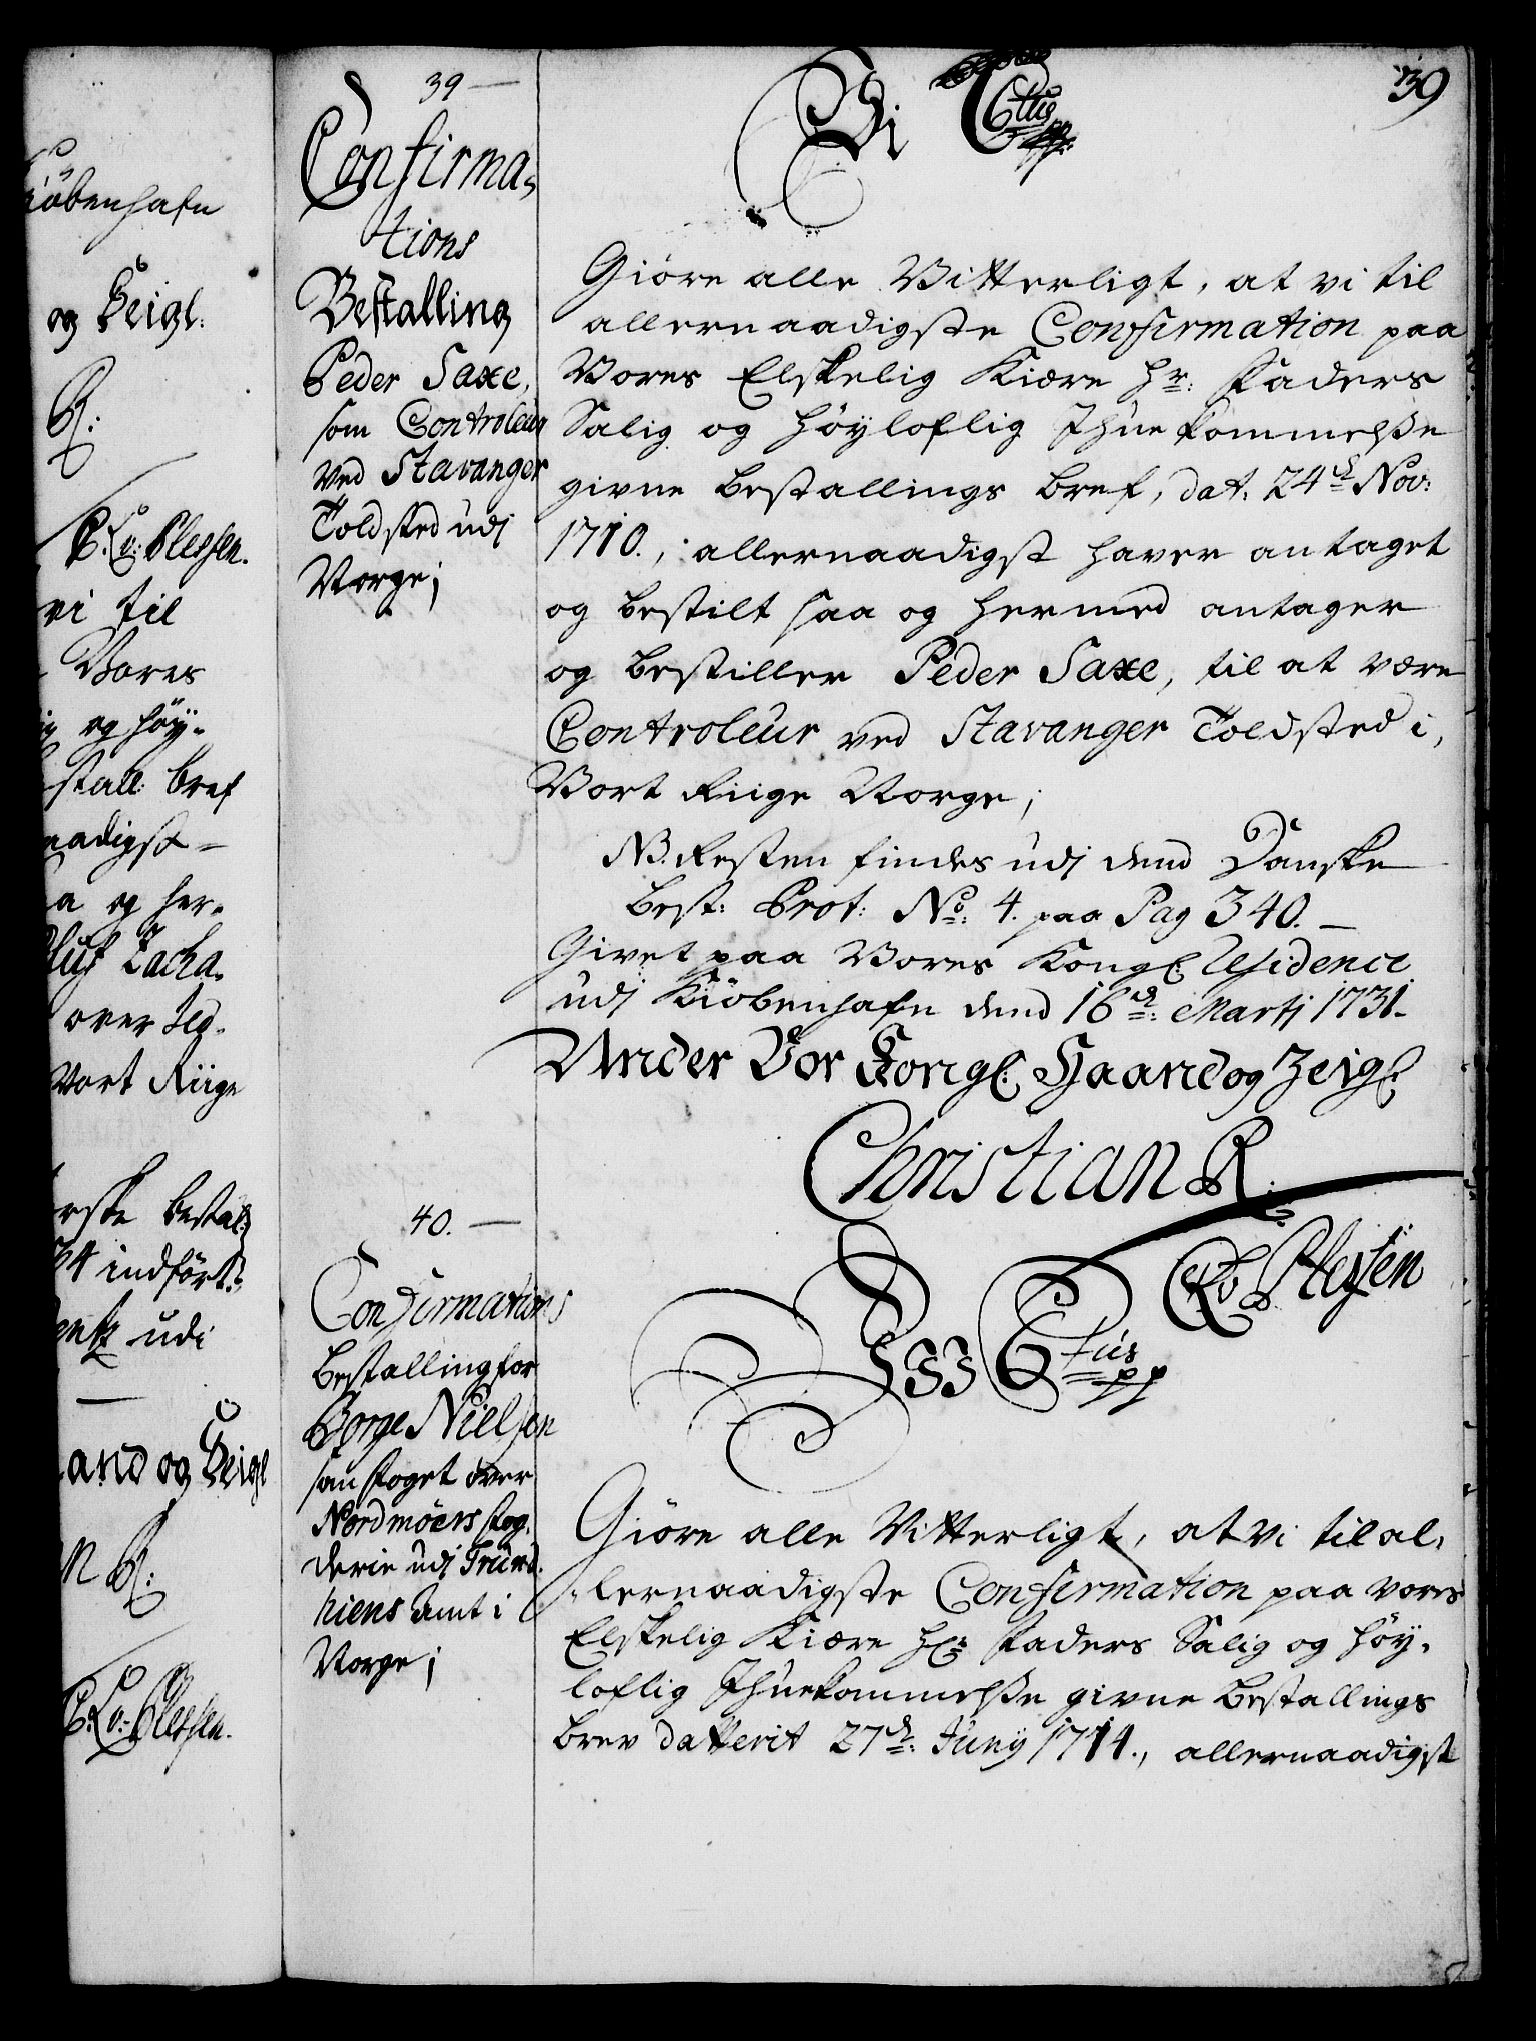 Kiöbenhafn
og Zeigl:
R:
C. L. v: Plessen.
vi til
Vores
og höy-
stall: bref
naadigst
a og her-
Oluf Zacha-
over Jed-
Vort Riige
rske bestal:
indfört:
udi
aand og Zeigl
n R:
C. L. v: Plessen.
39
39
Confirma-
tions
Bestalling
Peder Saxe,
som Controleur
ved Stavanger
Toldsted udj
Norge;
Vi C 6tus pp:
Giöre alle Vitterligt, at vi til
allernaadigste Confirmation paa
Vores Elskelig Kiere Hr: Faders
Salig og höyloflig Ihuekommelsse
givne bestallings bref, dat: 24de Nov:
1710., allernaadigst haver antaget
og bestilt saa og hermed antager
og bestiller Peder Saxe, til at være
Controleur ved Stavanger Toldsted i,
Vort Riige Norge;
NB. Resten findes udj dend Danske
Best: Prot: No: 4. paa Pag 340.
Givet paa Vores Kongl: Residence
udj Kiöbenhafn dend 16de: Martj 1731.
Under Vor Kongl: Haand og Zeigl:
Christian R:
C L v Plessen
40.
Confirmations
Bestalling for
Börge Nielsen
som foget over
Nordmöers fog-
derie udj Trund-
hiens Amt i
Norge;
Vi C 6tus pp
Giöre alle Vitterligt, at vi til al-
lernaadigste Confirmation paa vores
Elskelig Kiere Hr: Faders Salig og höy-
loflig Ihuekommelsse givne bestallings
brev datterit 27de: Junij 1714., allernaadigst